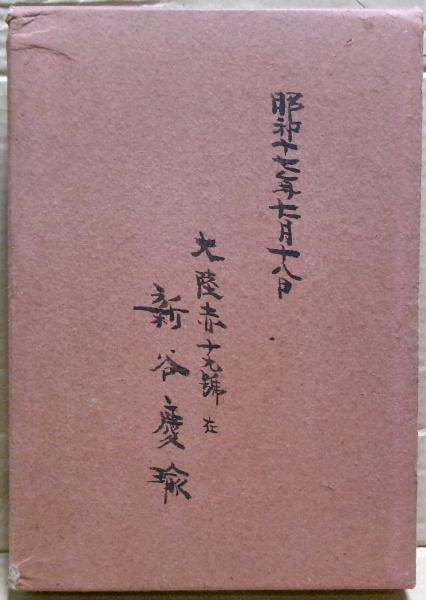 昭和十七年七月十八日
大陸赤十九號在
新谷慶瑜